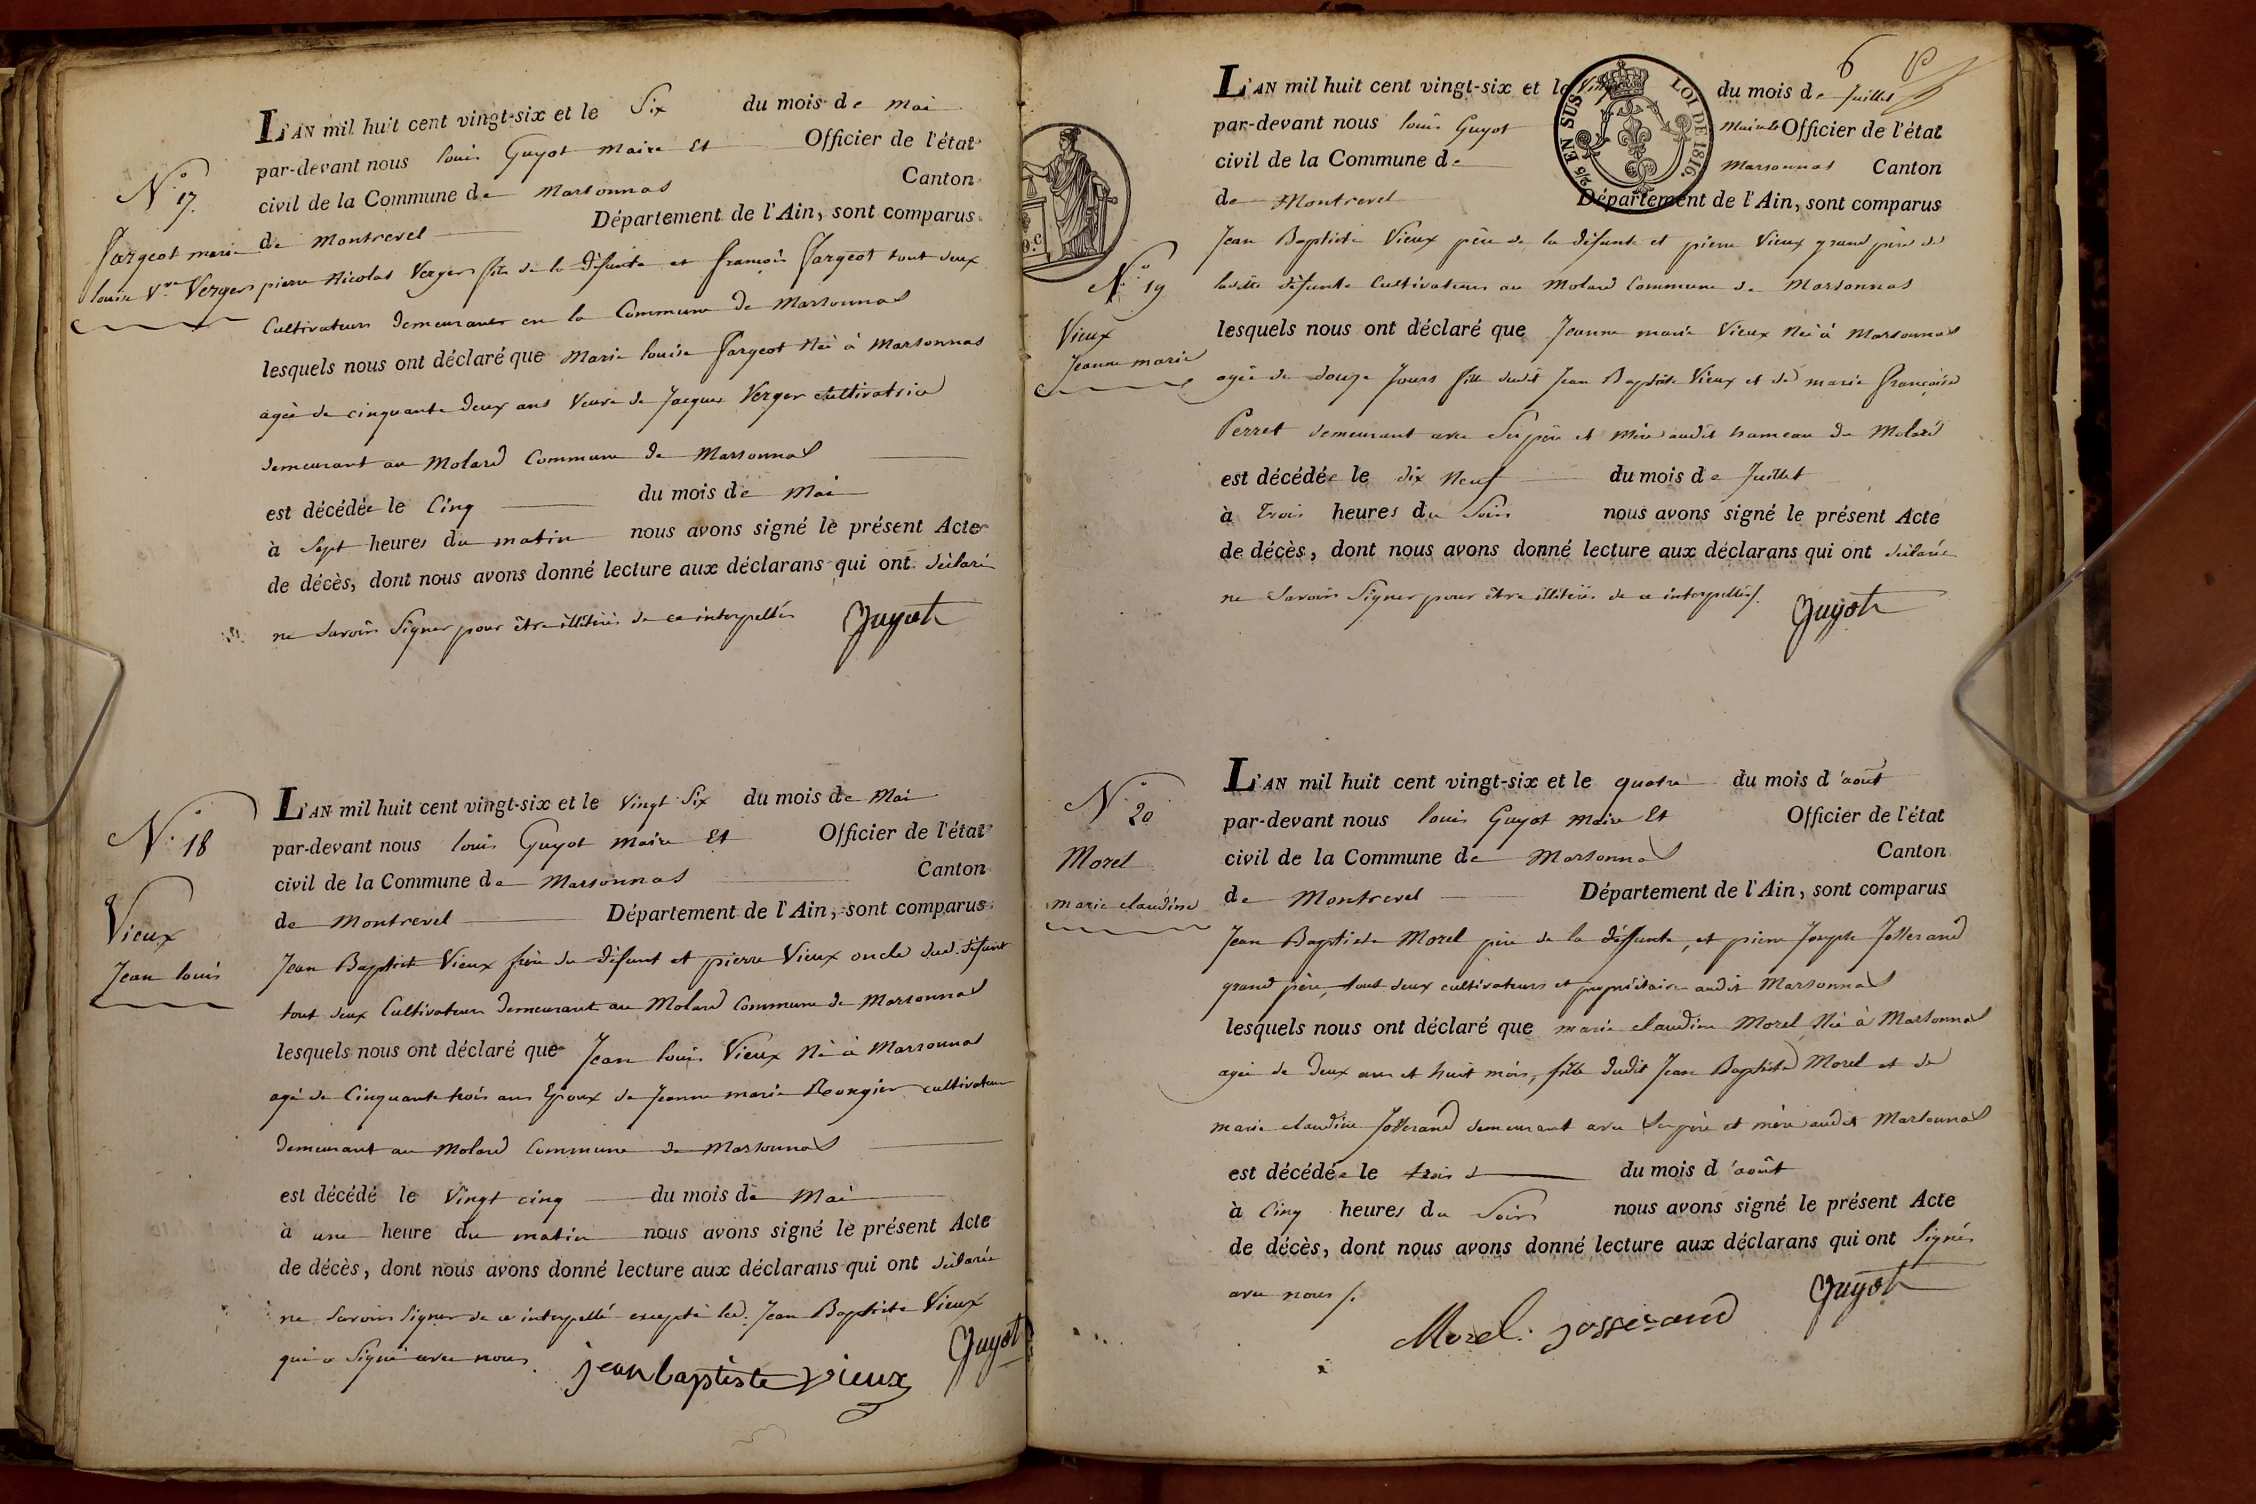 N.o 17.
Fargeot marie
louise V.ve Verger
L'AN mil huit cent vingt-six et le Six du mois de Mai
par-devant nous louis Guyot maire Et Officier de l'état
civil de la Commune de Marsonnas Canton
de Montrevel Département de l'Ain, sont comparus
pierre Nicolas Verger fils de la défunte et françois Fargeot tout deux
Cultivateurs demeurants en la Commune de Marsonnas
lesquels nous ont déclaré que Marie louise Fargeot Née à Marsonnas
agée de cinquante deux ans Veuve de Jacques Verger cultivatrice
demeurant au Molard Commune de Marsonnas
est décédée le Cinq du mois de Mai
à Sept heures du matin nous avons signé le présent Acte
de décès, dont nous avons donné lecture aux déclarans qui ont déclaré
ne Savoir Signer pour être illitérés de ce interpellés
Guyot
N.o 18
Vieux
Jean louis
L'AN mil huit cent vingt-six et le Vingt Six du mois de Mai
par-devant nous louis Guyot maire Et Officier de l'état
civil de la Commune de Marsonnas Canton
de Montrevel Département de l'Ain, sont comparus
Jean Baptiste Vieux frère du défunt et pierre Vieux oncle dud. défunt
tout deux Cultivateurs demeurant au Molard Commune de Marsonnas
lesquels nous ont déclaré que Jean louis Vieux Né à Marsonnas
agé de Cinquante trois ans Epoux de Jeanne marie cultivateur
demeurant au Molard Commune de Marsonnas
est décédé le Vingt cinq du mois de Mai
à une heure du matin nous avons signé le présent Acte
de décès, dont nous avons donné lecture aux déclarans qui ont déclarée
ne Savoir Signer de ce interpellé excepté led. Jean Baptiste Vieux
qui a Signé avec nous.
jean baptiste vieux
Guyot
6
EN SUS LOI DE 1816.
N.o 19
Vieux
Jeanne marie
L'AN mil huit cent vingt-six et le Vingt du mois de Juillet
par-devant nous louis Guyot Maire Et Officier de l'état
civil de la Commune de Marsonnas Canton
de Montrevel Département de l'Ain, sont comparus
Jean Baptiste Vieux père de la défunte et pierre Vieux grand père de
ladite défunte Cultivateurs au Molard Commune de Marsonnas
lesquels nous ont déclaré que Jeanne marie Vieux Née à Marsonnas
agée de douze Jours fille dudit Jean Baptiste Vieux et de marie françoise
Perret demeurant avec Ses père et Mère audit hameau du Molard
est décédée le dix Neuf du mois de Juillet
à Trois heures du Soir nous avons signé le présent Acte
de décès, dont nous avons donné lecture aux déclarans qui ont déclarée
ne Savoir Signer pour être illitérés de ce interpellés.
Guyot
N.o 20
Morel
marie claudine
L'AN mil huit cent vingt-six et le quatre du mois d'août
par-devant nous louis Guyot Maire Et Officier de l'état
civil de la Commune de Marsonnas Canton
de Montrevel Département de l'Ain, sont comparus
Jean Baptiste Morel père de la défunte, et pierre Joseph Josserand
grand père, tout deux cultivateurs et propriétaire audit Marsonnas
lesquels nous ont déclaré que marie claudine Morel Née à Marsonnas
agée de deux ans et huit mois, fille dudit Jean Baptiste Morel et de
marie claudine Josserand demeurant avec Ses père et mère audit Marsonnas
est décédée le trois du mois d'août
à Cinq heures du Soir nous avons signé le présent Acte
de décès, dont nous avons donné lecture aux déclarans qui ont Signés
avec nous /.
Guyot
Morel. josserand